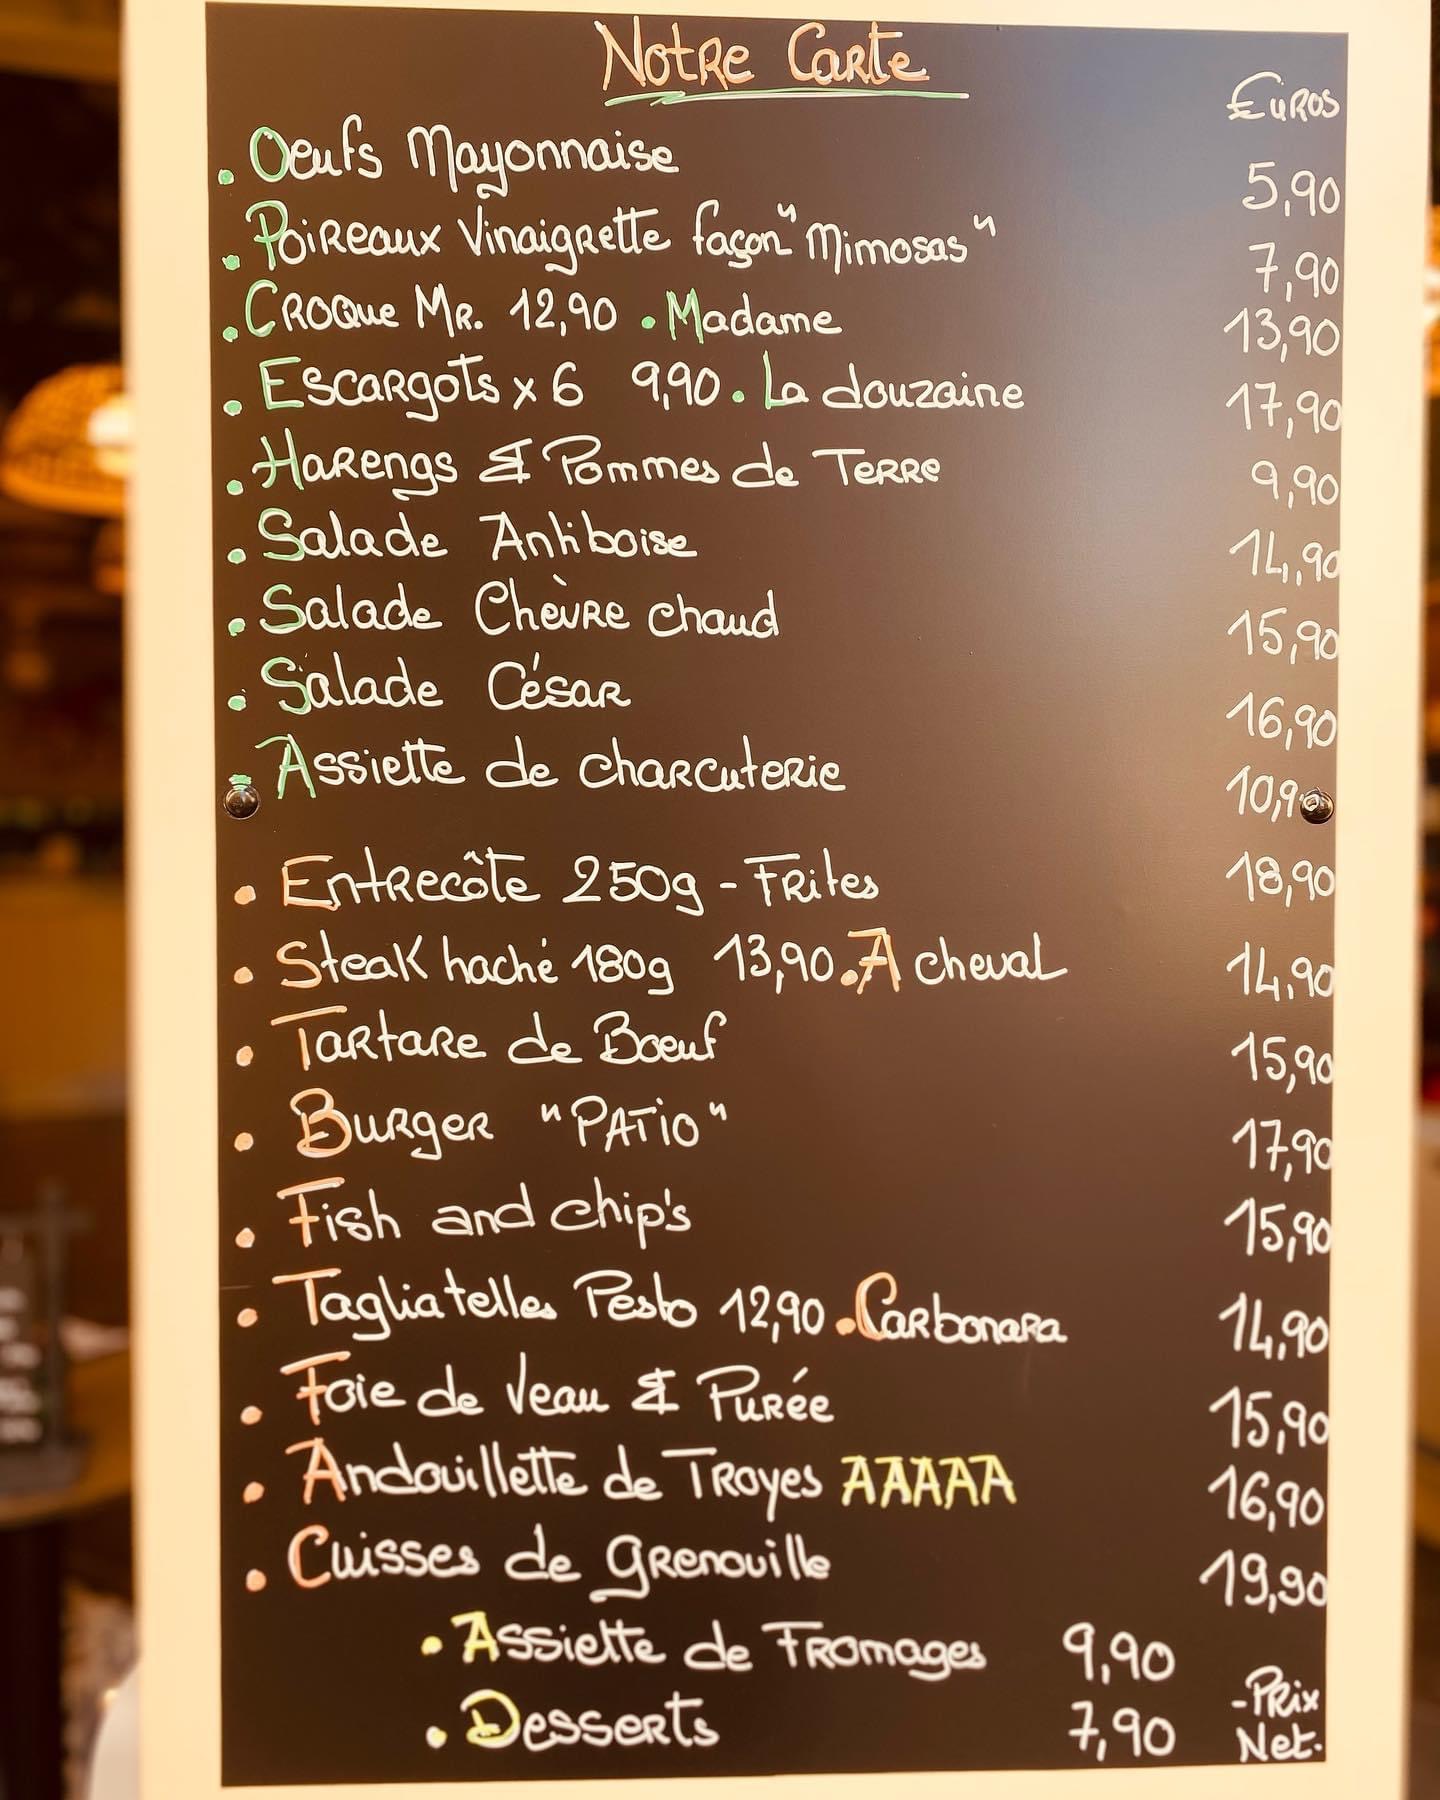 Notre Carte
Euros
. Oeufs Mayonnaise 5,90
. Poireaux Vinaigrette façon "Mimosas" 7,90
. Croque Mr. 12,90 . Madame 13,90
. Escargots x 6 9,90 . La douzaine 17,90
. Harengs & Pommes de Terre 9,90
. Salade Antiboise 14,90
. Salade Chèvre chaud 15,90
. Salade César 16,90
. Assiette de charcuterie 10,90
. Entrecôte 250g - Frites 18,90
. Steak haché 180g 13,90 . A cheval 14,90
. Tartare de Boeuf 15,90
. Burger "PATIO" 17,90
. Fish and chip's 15,90
. Tagliatelles Pesto 12,90 . Carbonara 14,90
. Foie de Veau & Purée 15,90
. Andouillette de Troyes AAAAA 16,90
. Cuisses de grenouille 19,90
. Assiette de Fromages 9,90
. Desserts 7,90
- Prix
Net.